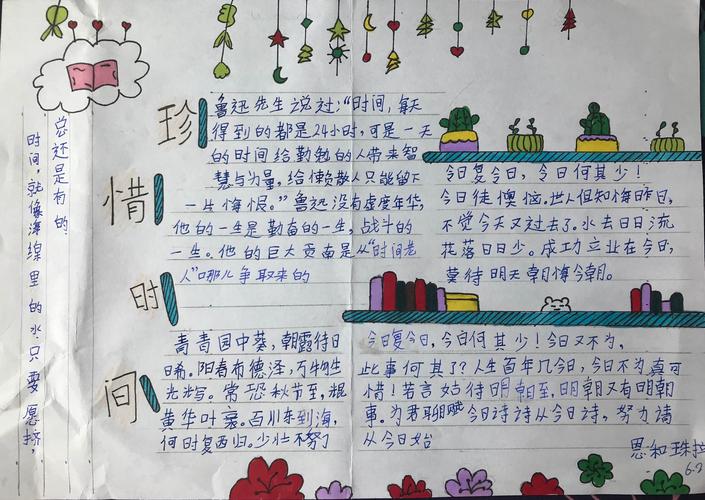 珍惜时间
时间,就像海绵里的水只要愿挤,
总还是有的
鲁迅先生说过:“时间,每天
得到的都是24小时,可是一天
的时间给勤勉的人带来智
慧与力量,给懒散人只能留下
一生悔恨。”鲁迅没有虚度年华,
他的一生是勤奋的一生,战斗的
一生。他的巨大贡南是从“时间老
人”哪儿争取来的
今日复今日,今日何其少!
今日徒懊恼,世人但知悔昨日,
不觉今天又过去了。水去日日流
花落日日少。成功立业在今日,
莫待明天朝悔今朝。
青青园中葵,朝露待日
日晞。阳春布德泽,万物生
光辉。常恐秋节至,焜
黄华叶衰。百川东到海,
何时复西归。少壮不努了
今日复今日,今日何其少!今日又不为,
此事何其了?人生百年几今日,今日不为真可
惜!若言姑待明朝至,明朝又有明朝
事。为君聊赋今日诗诗从今日诗,努力请
从今日始
思和珠拉